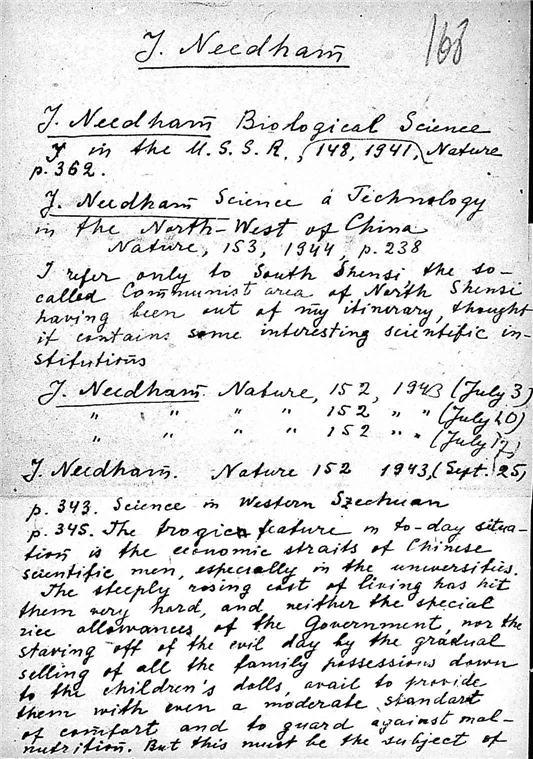 J. Needham
168
J. Needham Biological Science
in the U.S.S.R., 148, 1941, Nature
p. 362.
J. Needham Science a Technology
in the North-West of China
Nature, 153, 1944, p. 238
I refer only to South Shensi, the so-
called Communist area of North Shensi
having been out of my itinerary, thought
it contains some interesting scientific in-
stitutions
J. Needham. Nature, 152, 1943 (July 3)
" " " " 152 " " (July 10)
" " " " 152 " " (July 17)
J. Needham. Nature 152 1943, (Sept. 25)
p. 343. Science in Western Szechuan
p. 345. The tragic feature in to-day situa-
tion is the economic straits of Chinese
scientific men, especially in the universities.
The steeply rising cost of living has hit
them very hard, and neither the special
rice allowances of the Government, nor the
staving off of the evil day by the gradual
selling of all the family possessions down
to the children's dolls, avail to provide
them with even a moderate standard
of comfort and to guard against mal-
nutrition. But this must be the subject of